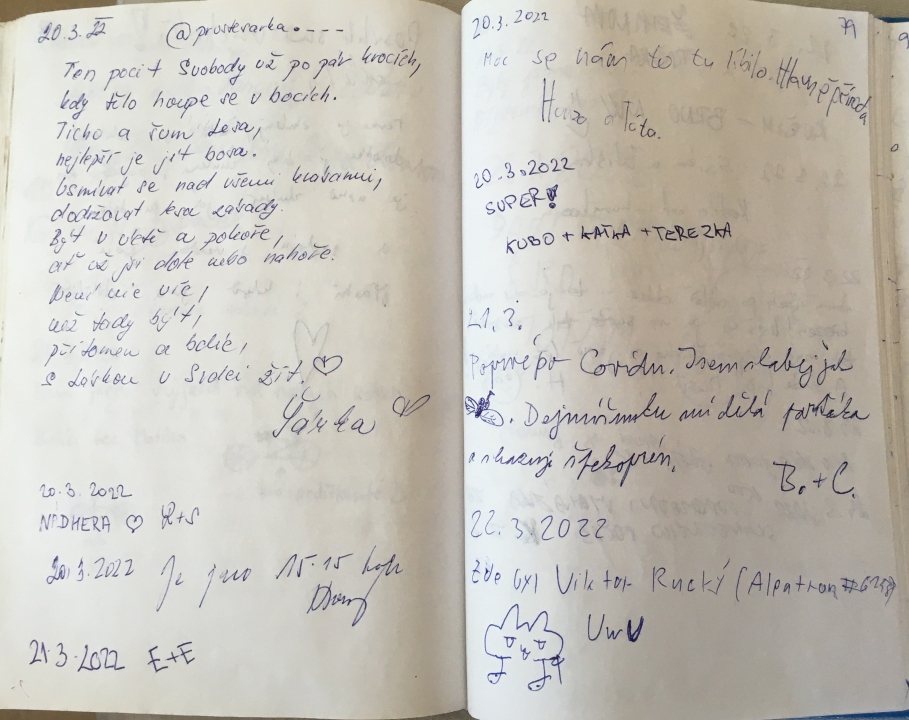 20.3.22 @prostesarka.----
Ten pocit Svobody už po pár krocích,
kdy tělo houpe se v bocích.
Ticho a šum Lesa,
nejlepší je jít bosa.
Usmívat se nad všemi krásami,
dodržovat lesa zásady.
Být v úctě a pokoře,
ať už jsi dole nebo nahoře.
Není nic víc,
než tady být,
přítomen a bdíc,
s Láskou v Srdci žít.
Šárka
20.3.2022
NÁDHERA K+S
20.3.2022 Je jaro 15.15 hod
21.3.2022 E+E
20.3.2022 79
Moc se nám to tu líbilo. Hlavně příroda
Honza a Týta.
20.3.2022
SUPER!
KUBO + KAŤKA + TEREZKA
21.3.
Poprvé po Covidu. Jsem slabý jak
. Dejmismutu mi dělá parťáka
a ukazuje
B. + C.
22.3 2022
Zde byl Viktor Rucký (Alpatron
UwU